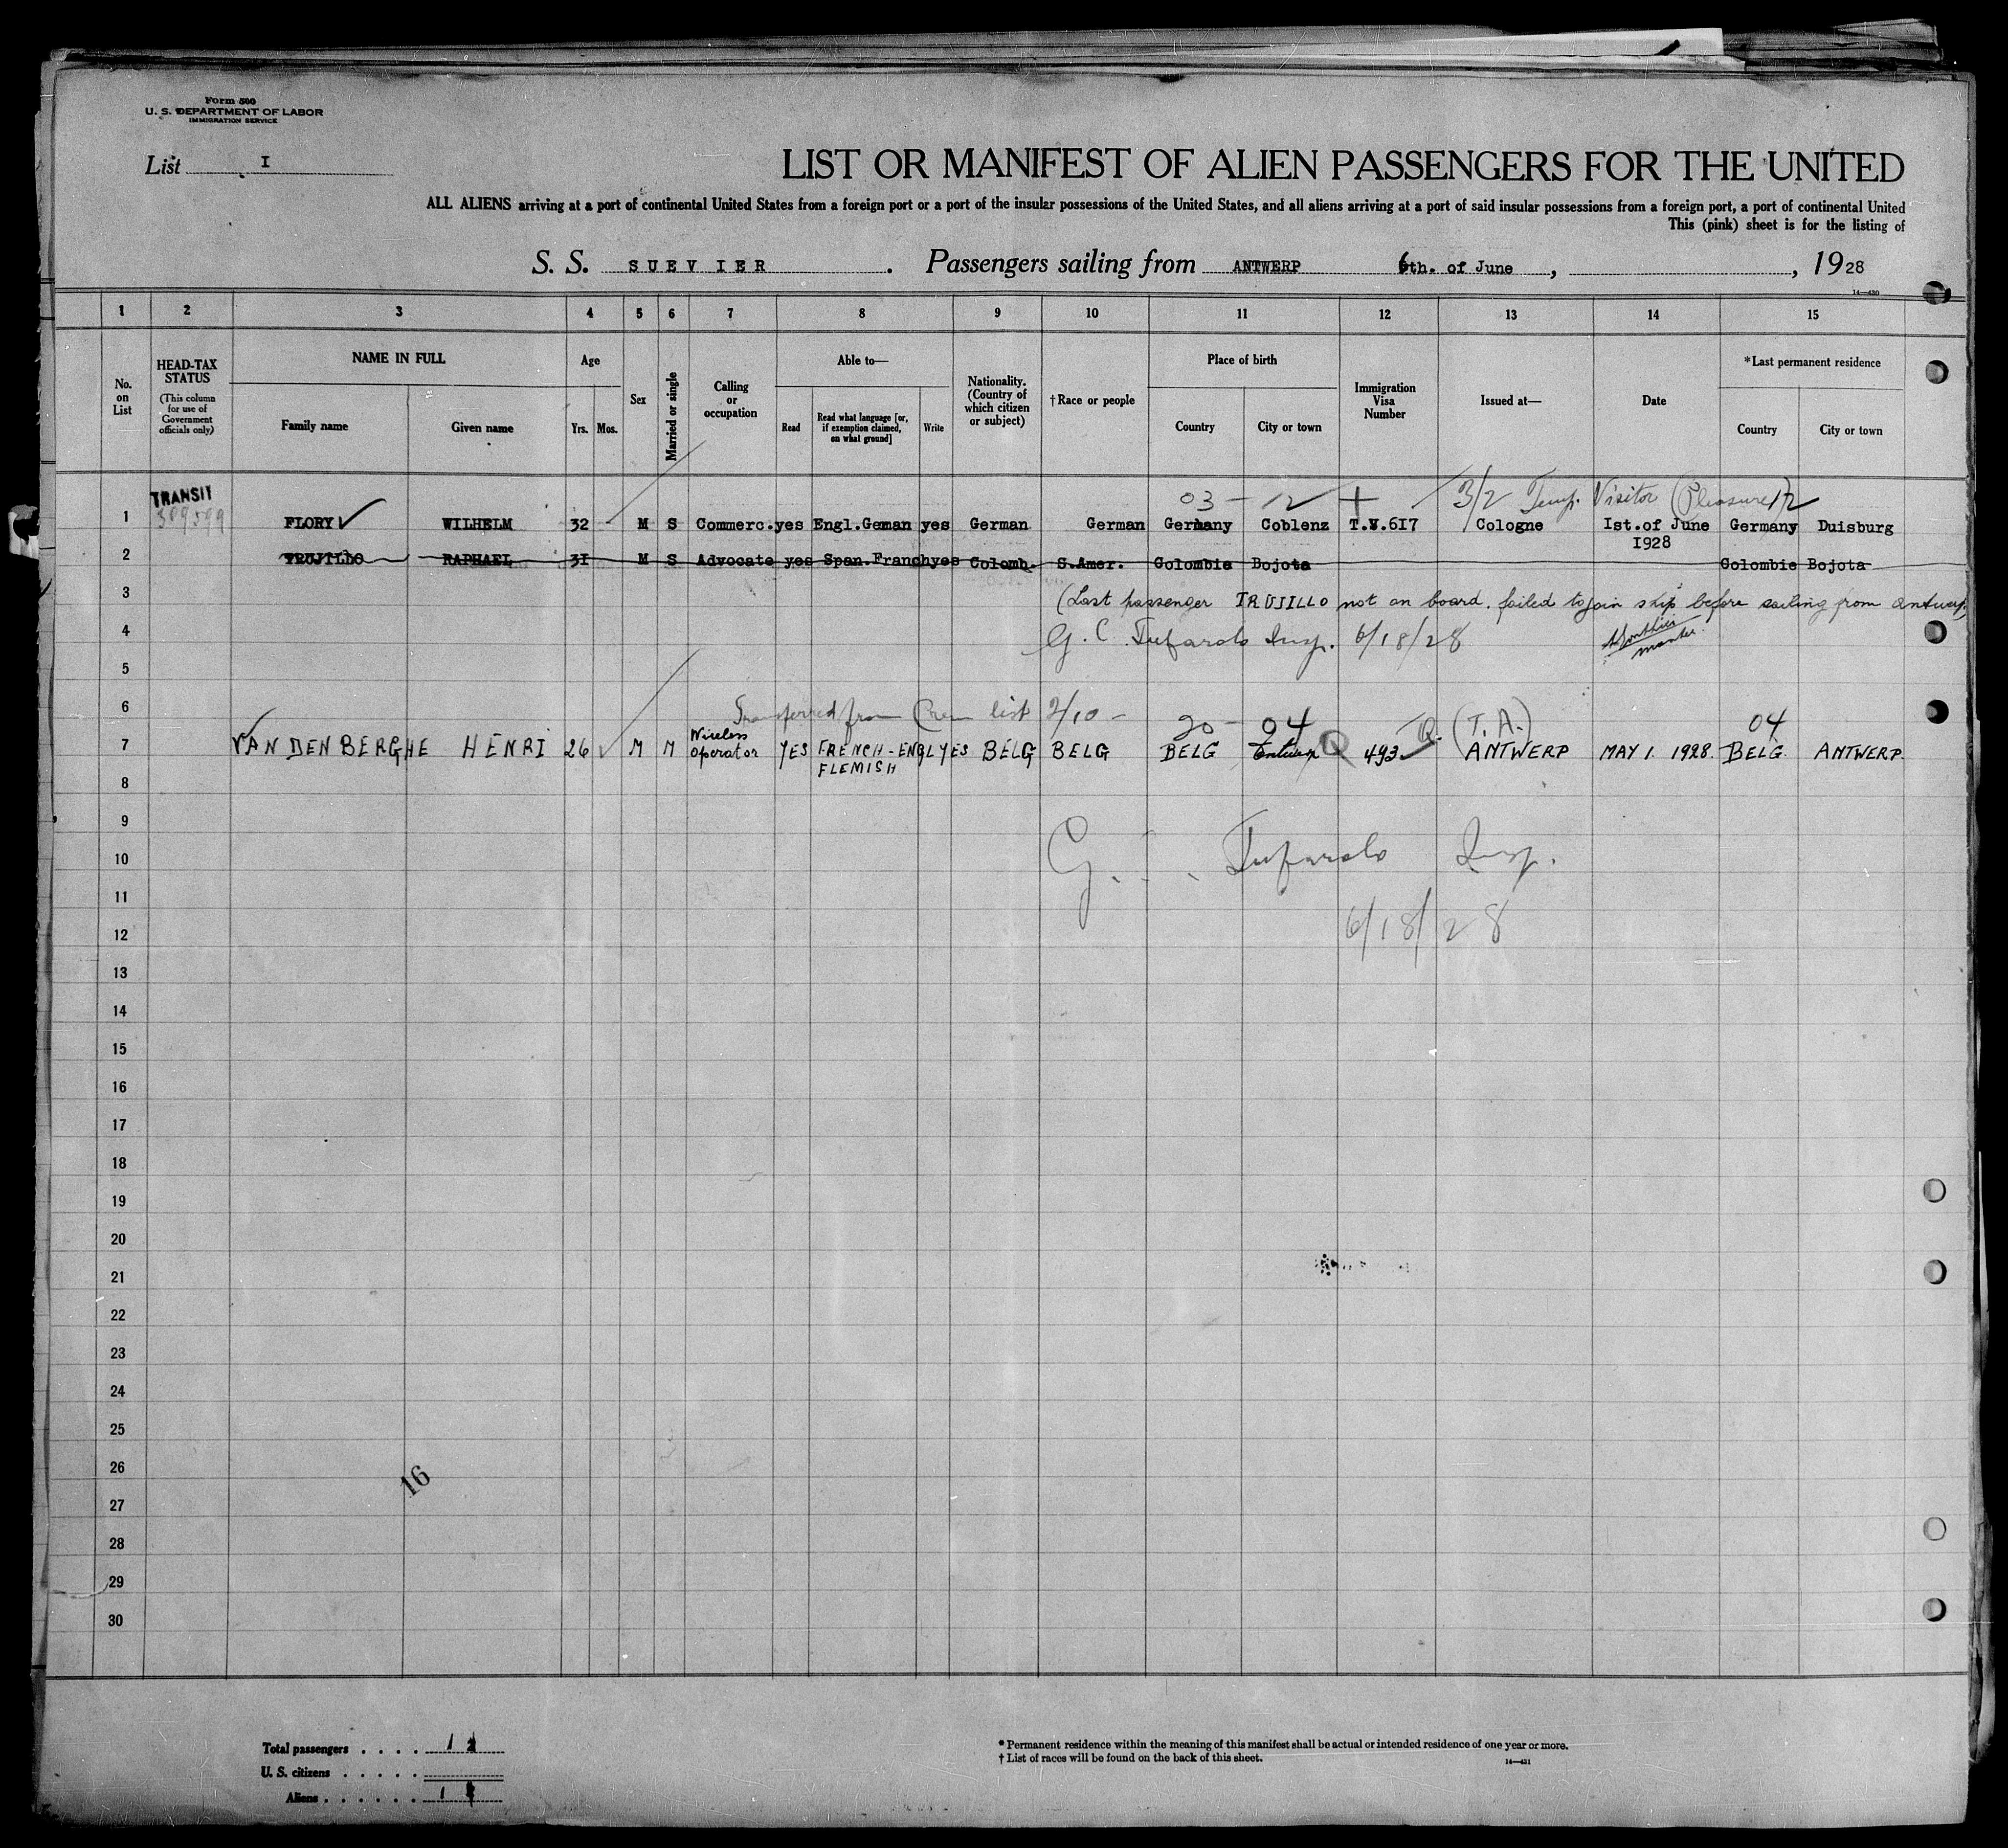 Form 500
U. S. DEPARTMENT OF LABOR
IMMIGRATION SERVICE
List I
LIST OR MANIFEST OF ALIEN PASSENGERS FOR THE UNITED
ALL ALIENS arriving at a port of continental United States from a foreign port or a port of the insular possessions of the United States, and all aliens arriving at a port of said insular possessions from a foreign port, a port of continental United
This (pink) sheet is for the listing of
S. S. SUEVIER . Passengers sailing from ANTWERP 6th. of June , , 1928
14—430
1 2 3 4 5 6 7 8 9 10 11 12 13 14 15
No. on List
HEAD-TAX STATUS
(This column for use of Government officials only)
NAME IN FULL
Family name Given name
Age
Yrs. Mos.
Sex
Married or single
Calling or occupation
Able to—
Read Read what language [or, if exemption claimed, on what ground] Write
Nationality. (Country of which citizen or subject)
†Race or people
Place of birth
Country City or town
Immigration Visa Number
Issued at—
Date
*Last permanent residence
Country City or town
TRANSIT 03 - 12 3/2 Temp. Visitor (Pleasure)
1 309599 FLORY WILHELM 32 M S Commerc. yes Engl.Geman yes German German Germany Coblenz T.V.617 Cologne Ist.of June Germany Duisburg
1928
2 TRUJILLO RAPHAEL 3I M S Advocate yes Span.Franch yes Colomb. S.Amer. Colombie Bojota Colombie Bojota
3 (Last passenger TRUJILLO not on board. failed to join ship before sailing from Antwerp)
4 G. C. Tufarolo Insp. 6/18/28
5
6 Transferred from Crew list 2/10 -
20 - 04 Q. (T.A.) 04
7 VAN DEN BERGHE HENRI 26 M M Wireless operator YES FRENCH-ENGL FLEMISH YES BELG BELG BELG Antwerp Q 493 ANTWERP MAY 1. 1928. BELG. ANTWERP.
8
9
10 G. Tufarolo Insp.
11
12 6/18/28
13
14
15
16
17
18
19
20
21
22
23
24
25
26
16
27
28
29
30
Total passengers . . . . 1
U. S. citizens . . . . .
Aliens . . . . . . 1
* Permanent residence within the meaning of this manifest shall be actual or intended residence of one year or more.
† List of races will be found on the back of this sheet.
14—431